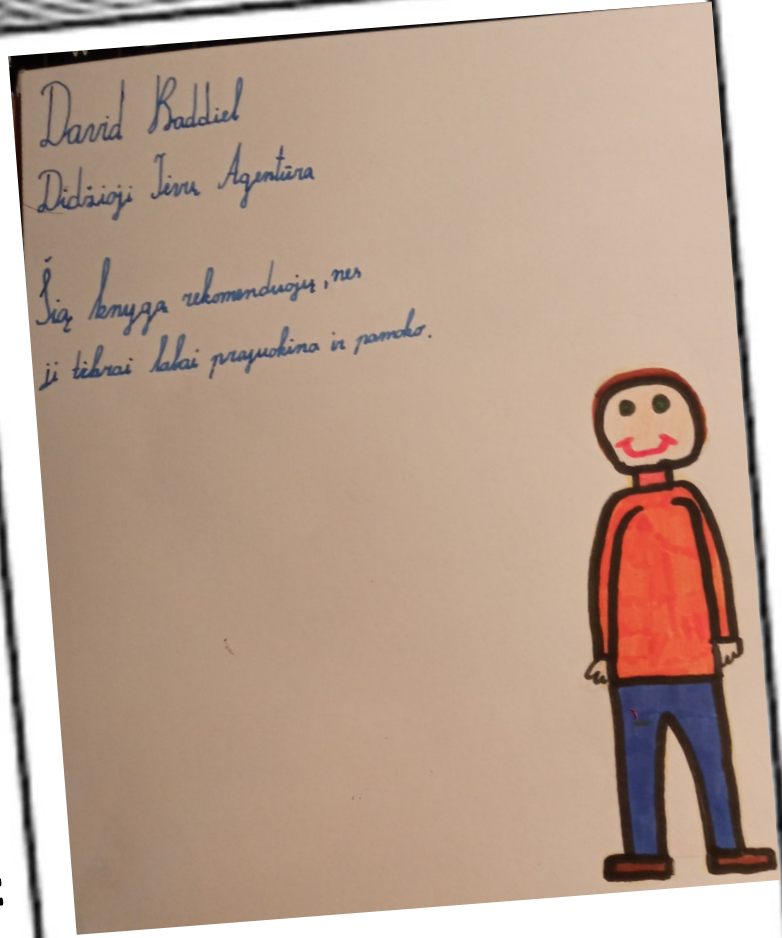 David Baddiel
Didžioji Tėvų Agentūra
Šią knygą rekomenduojų, nes
ji tikrai labai prajuokina ir pamoko.